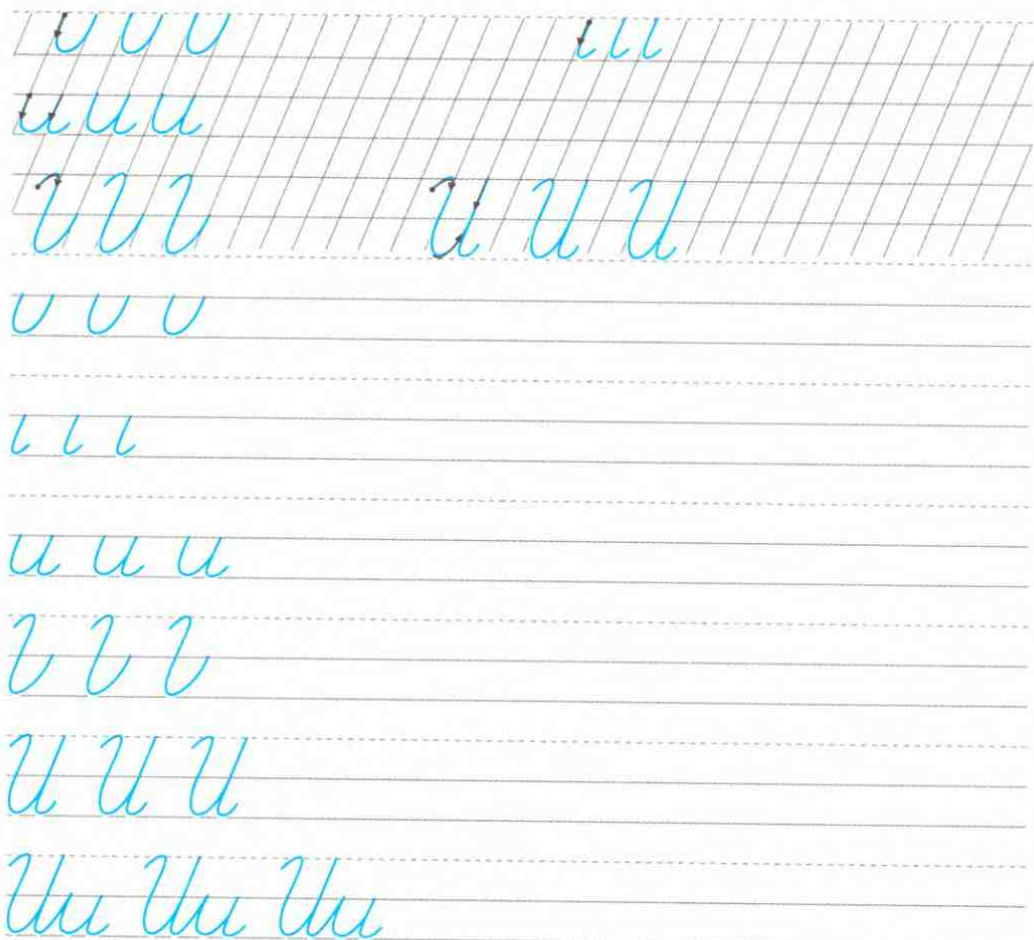 и и и
И И И
и и и
И И И
Ии Ии Ии